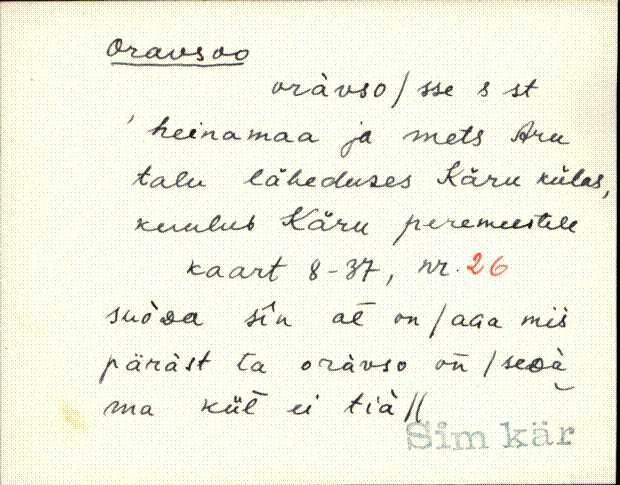 Oravsoo
oràvso / sse s st
' heinamaa ja mets Aru
talu läheduses Käru külas,
kuulub Käru peremeestele
kaart 8-37, nr. 26
suòda sîn at̄ on / aga mis
päràst ta oràvso on̄ / sedà
ma kül̄ ei tià //
Sim kär